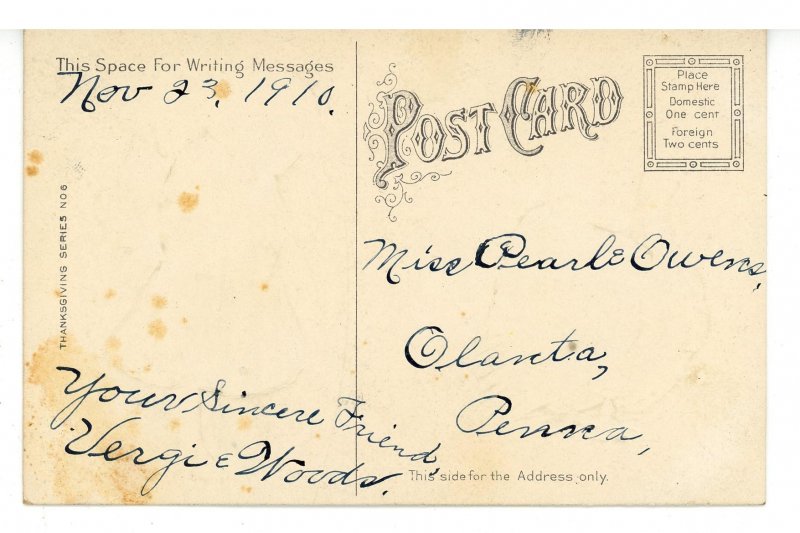 This Space For Writing Messages
Nov 23, 1910.
THANKSGIVING SERIES NO 6
Your Sincere Friend,
Vergie Woods.
POST CARD
Place
Stamp Here
Domestic
One cent
Foreign
Two cents
Miss Pearle Owens,
Olanta,
Penna,
This side for the Address only.